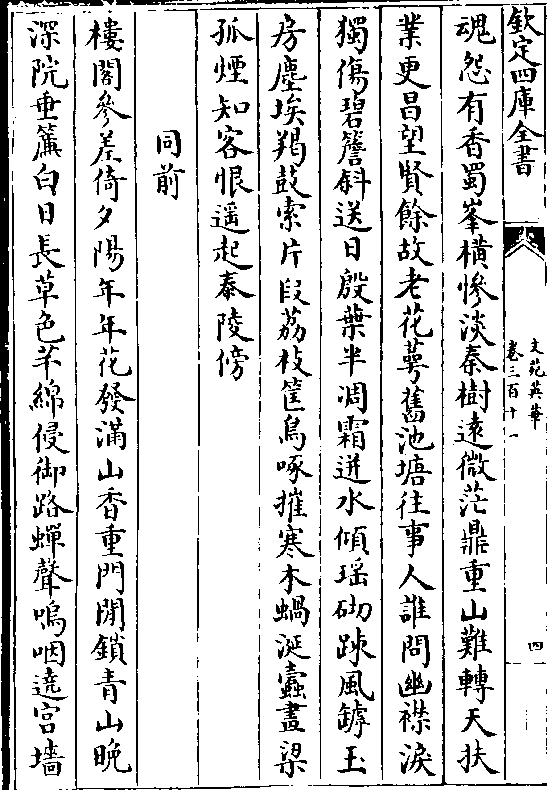 欽定四庫全書
文苑英華
卷三百十一
四
魂怨有香蜀峯橫慘淡秦樹遠微茫鼎重山難轉天扶
業更昌望賢餘故老花萼舊池塘往事人誰問幽襟淚
獨傷碧簷斜送日殷葉半凋霜迸水傾瑶砌疎風罅玉
房塵埃羯鼓索片段荔枝筐鳥啄摧寒木蝸涎蠹畫梁
孤煙知客恨遥起泰陵傍
同前
樓閣參差倚夕陽年年花發滿山香重門閒鎖青山晚
深院垂簾白日長草色芊綿侵御路蟬聲嗚咽遶宫墻